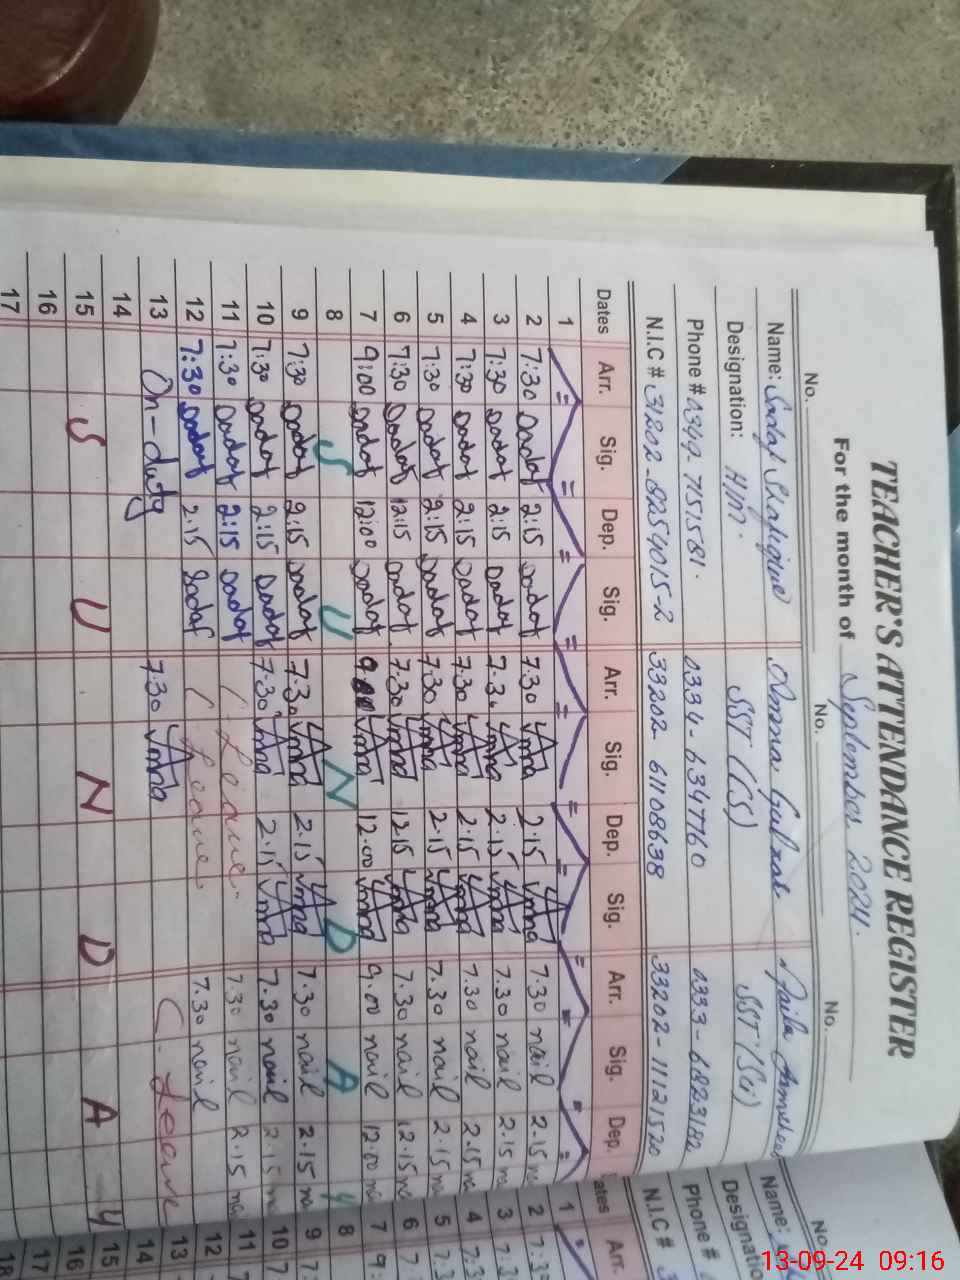 TEACHER'S ATTENDANCE REGISTER
For the month of September 2024.
No. No. No.
Name: Sadaf Shafique Amna Gulzar Naila
Designation: H/M. SST (CS) SST (Sci)
Phone # 0334-6347760 0333-6823182
N.I.C # 31202-8254015-2 33202 61108638 33202-11121520
Dates Arr. Sig. Dep. Sig. Arr. Sig. Dep. Sig. Arr. Sig. Dep.
1 = = = = = = = = = = =
2 7:30 Sadaf 2:15 Sadaf 7.30 Amna 2.15 Amna 7.30 nail 2.15
3 7:30 Sadaf 2:15 Sadaf 7.30 Amna 2.15 Amna 7.30 nail 2.15
4 7:30 Sadaf 2:15 Sadaf 7.30 Amna 2.15 Amna 7.30 nail 2.15
5 7:30 Sadaf 2:15 Sadaf 7.30 Amna 2.15 Amna 7.30 nail 2.15
6 7:30 Sadaf 12:15 Sadaf 7.30 Amna 12.15 Amna 7.30 nail 12.15
7 9:00 Sadaf 12:00 Sadaf 9.00 Amna 12.00 Amna 9.00 nail 12.00
8 S U N D A Y
9 7:30 Sadaf 2:15 Sadaf 7.30 Amna 2.15 Amna 7.30 nail 2.15
10 7:30 Sadaf 2:15 Sadaf 7.30 Amna 2.15 Amna 7.30 nail 2.15
11 7:30 Sadaf 2:15 Sadaf C. Leave. 7.30 nail 2.15
12 7:30 Sadaf 2:15 Sadaf C Leave 7.30 nail
13 On-duty 7.30 Amna C. Leave
14
15 S U N D A Y
16
17
No
Name:
Designation
Phone #
N.I.C #
Arr.
1
2 7:30
3 7:3
4 7:3
5 7:3
6 7:
7 9:
8
9 7:
10 7
11
12
13
14
15
16
17
18
13-09-24 09:16